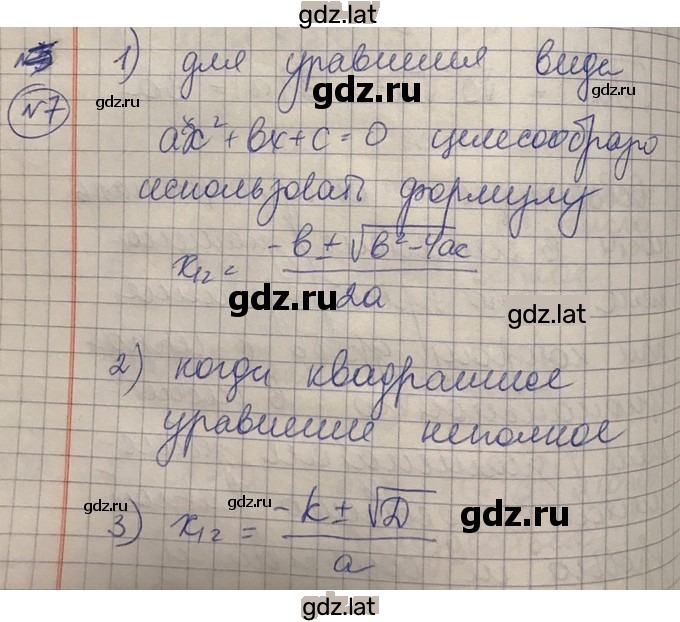 gdz.lat
№7 1) для уравнения вида
gdz.ru gdz.ru gdz.ru
ax² + bx + c = 0 целесообразно
использовать формулу
x₁₂ = (-b ± √(b² - 4ac)) / 2a
gdz.ru gdz.lat
2) когда квадратное
уравнение неполное
gdz.ru gdz.ru gdz.ru
3) x₁₂ = (-k ± √D) / a
gdz.lat